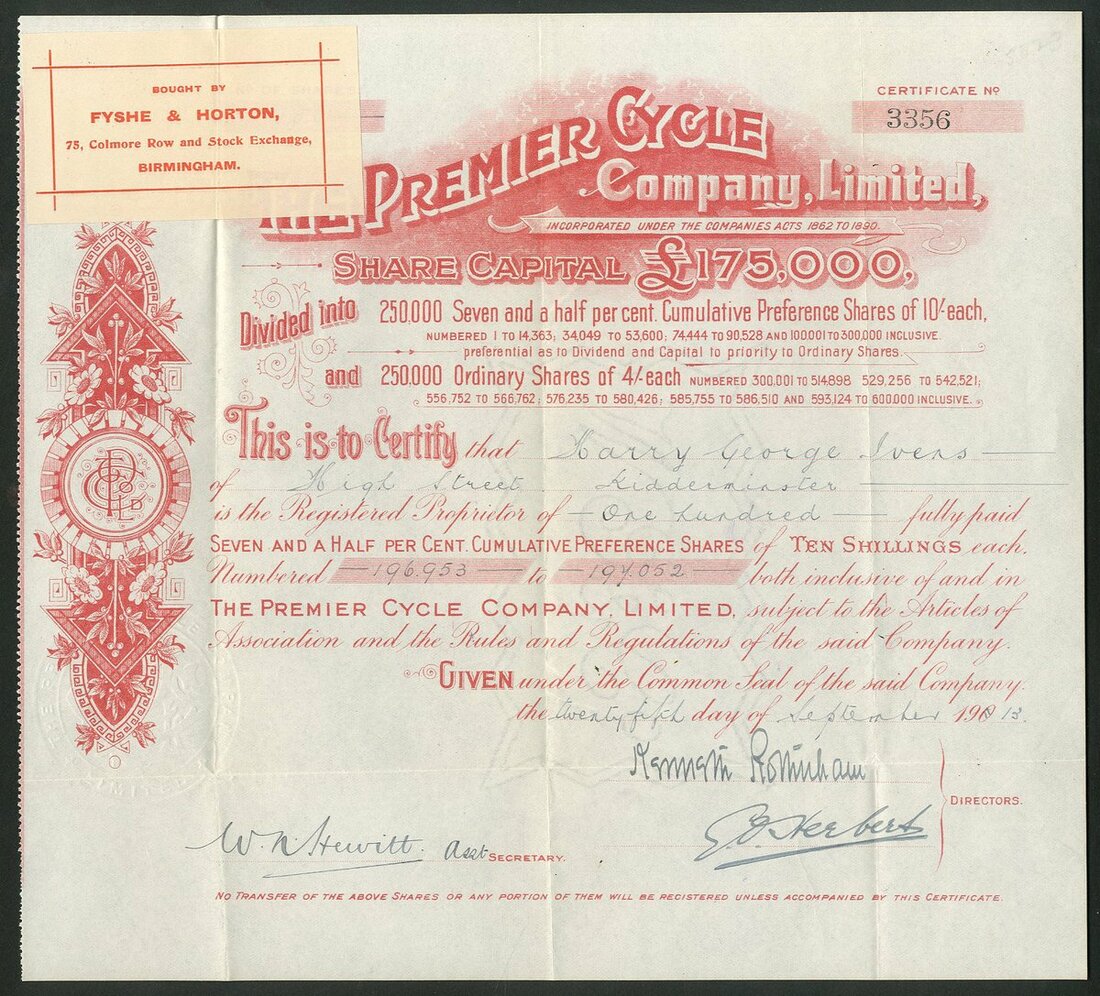 BOUGHT BY
FYSHE & HORTON,
75, Colmore Row and Stock Exchange,
BIRMINGHAM.
CERTIFICATE Nº
3356
THE PREMIER CYCLE
Company, Limited,
INCORPORATED UNDER THE COMPANIES ACTS 1862 TO 1890.
SHARE CAPITAL £175,000,
Divided into 250,000 Seven and a half per cent. Cumulative Preference Shares of 10/- each,
NUMBERED 1 TO 14,363; 34,049 TO 53,600; 74,444 TO 90,528 AND 100,001 TO 300,000 INCLUSIVE.
preferential as to Dividend and Capital to priority to Ordinary Shares.
and 250,000 Ordinary Shares of 4/- each NUMBERED 300,001 TO 514,898 529,256 TO 542,521;
556,752 TO 566,762; 576,235 TO 580,426; 585,755 TO 586,510 AND 593,124 TO 600,000 INCLUSIVE.
This is to Certify that Harry George Ivens
of High Street Kidderminster
is the Registered Proprietor of One hundred fully paid
SEVEN AND A HALF PER CENT. CUMULATIVE PREFERENCE SHARES of TEN SHILLINGS each,
Numbered 196,953 to 197,052 both inclusive of and in
THE PREMIER CYCLE COMPANY, LIMITED, subject to the Articles of
Association and the Rules and Regulations of the said Company.
GIVEN under the Common Seal of the said Company
the twenty fifth day of September 190 13.
Kenneth Rotherham
G. Herbert
DIRECTORS.
W. N. Hewitt. Asst SECRETARY.
NO TRANSFER OF THE ABOVE SHARES OR ANY PORTION OF THEM WILL BE REGISTERED UNLESS ACCOMPANIED BY THIS CERTIFICATE.